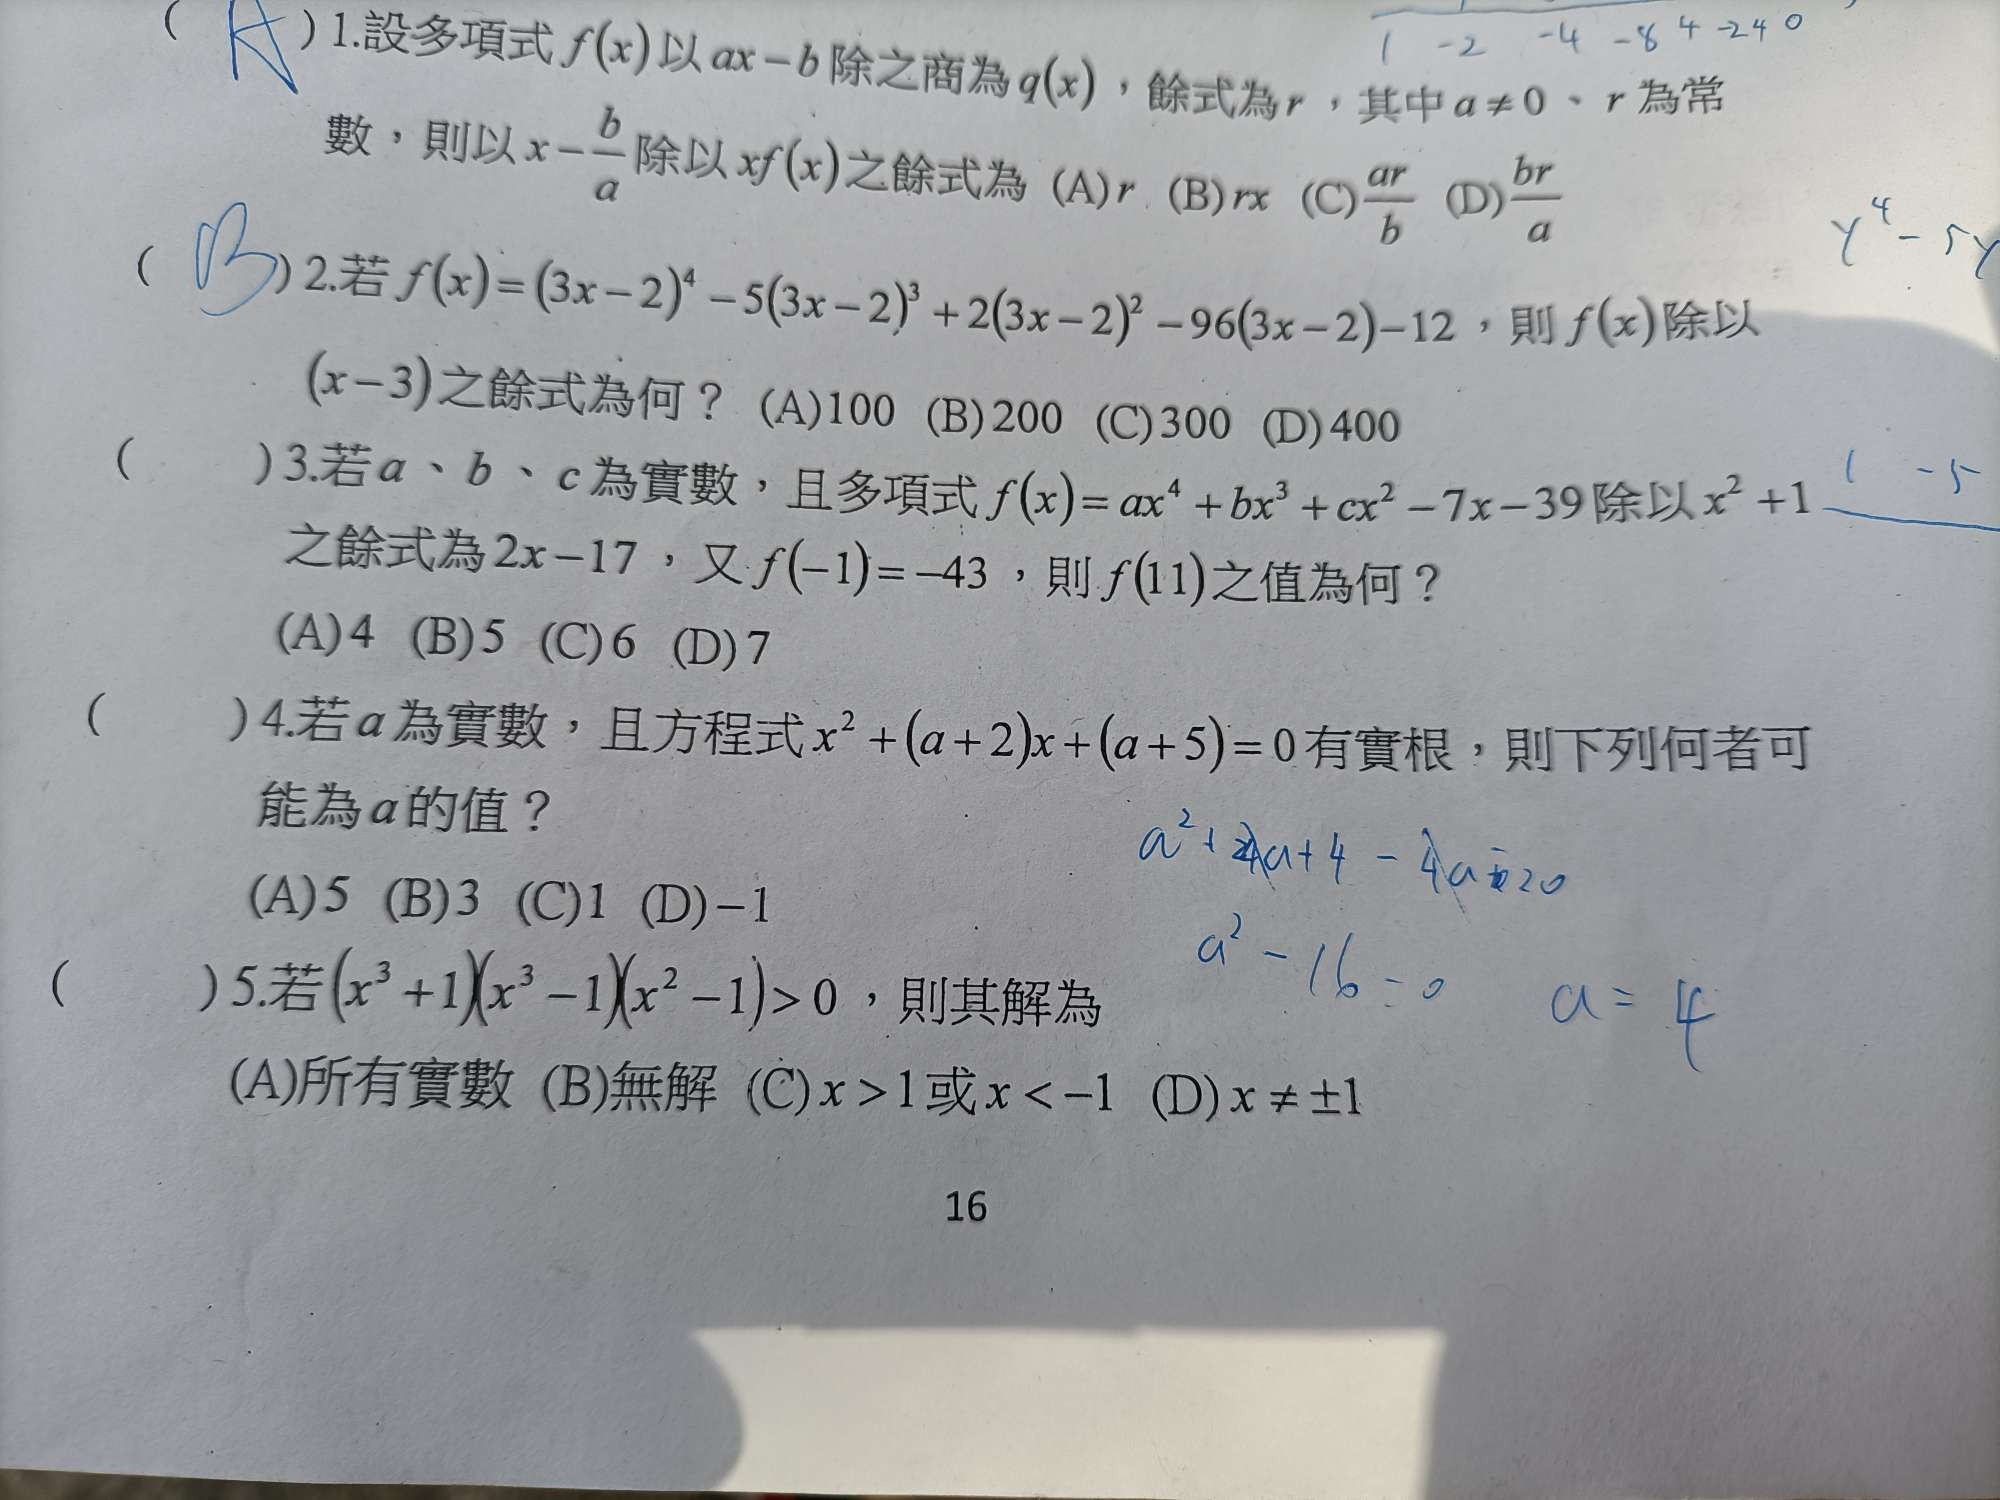 1 -2 -4 -8 4 -24 0
( A )1.設多項式 f(x)以 ax−b 除之商為 q(x)，餘式為 r，其中 a≠0、r 為常
數，則以 x−b/a 除以 xf(x)之餘式為 (A)r (B)rx (C)ar/b (D)br/a
y⁴-5y
( B )2.若 f(x)=(3x−2)⁴−5(3x−2)³+2(3x−2)²−96(3x−2)−12，則 f(x)除以
(x−3)之餘式為何？ (A)100 (B)200 (C)300 (D)400
( )3.若 a、b、c 為實數，且多項式 f(x)=ax⁴+bx³+cx²−7x−39 除以 x²+1
1 -5
之餘式為 2x−17，又 f(−1)=−43，則 f(11)之值為何？
(A)4 (B)5 (C)6 (D)7
( )4.若 a 為實數，且方程式 x²+(a+2)x+(a+5)=0 有實根，則下列何者可
能為 a 的值？
a²+4a+4-4a-20
(A)5 (B)3 (C)1 (D)−1
a²-16=0 a=4
( )5.若(x³+1)(x³−1)(x²−1)>0，則其解為
(A)所有實數 (B)無解 (C)x>1或x<−1 (D)x≠±1
16